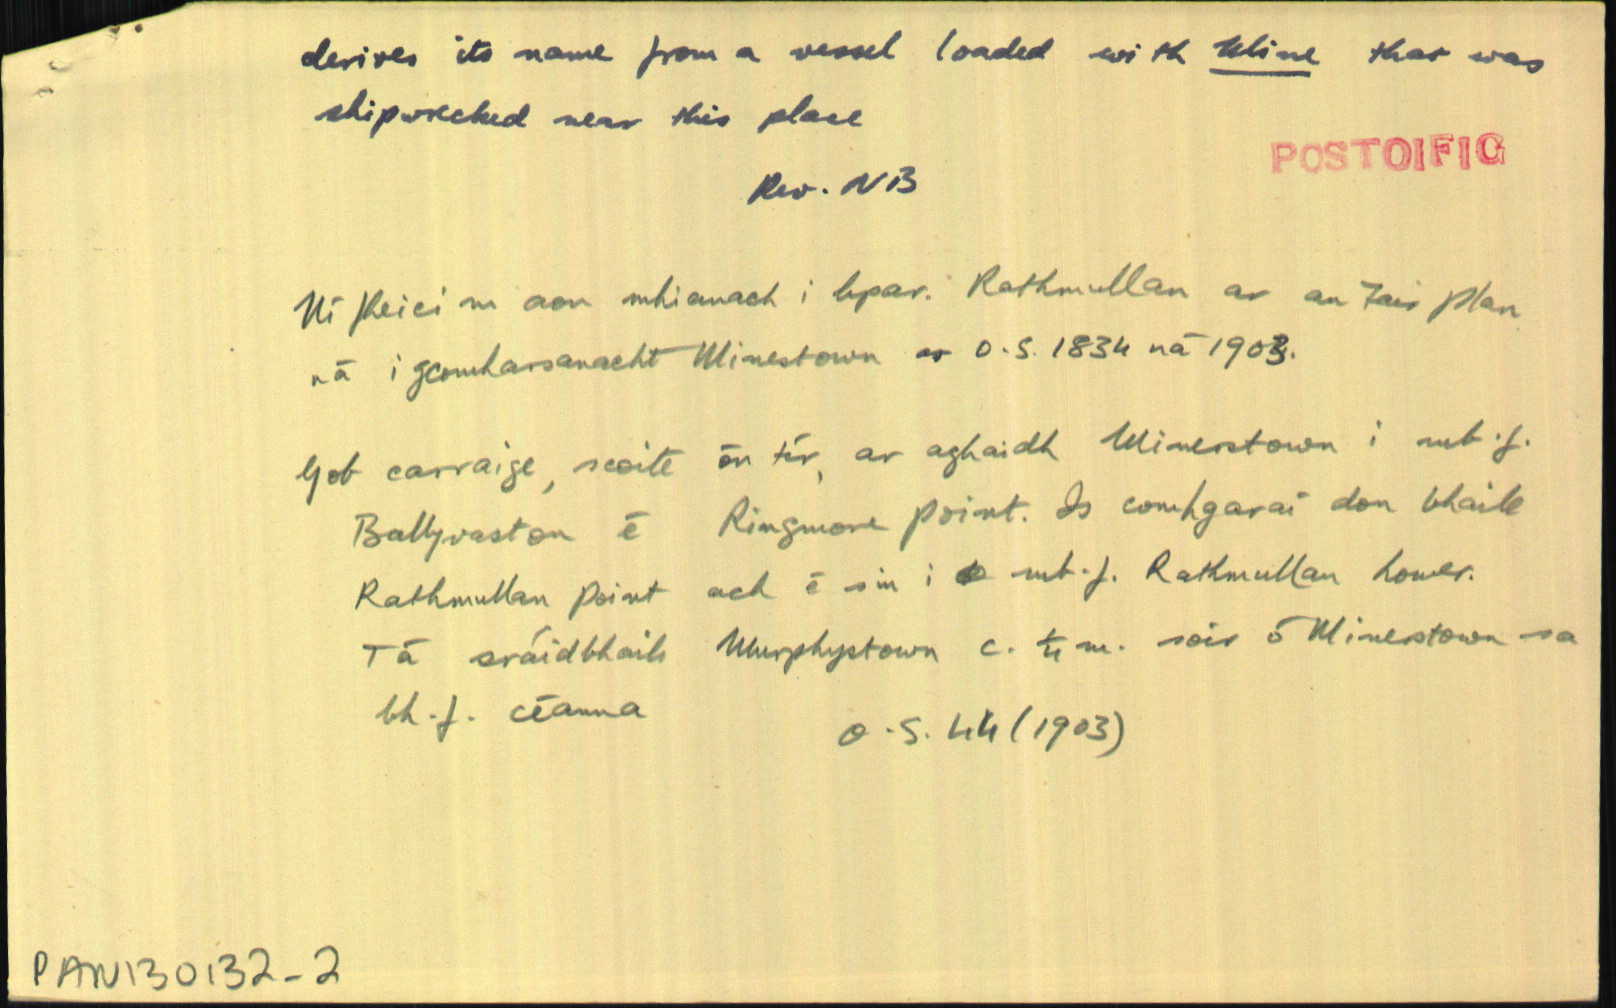 derives its name from a vessel loaded with Mine that was
shipwrecked near this place
POSTOIFIG
Rev. NB
Ní fheicim aon mhianach i bpar. Rathmullan ar an Tair Plan
ná i gcomharsanacht Minestown ar O.S. 1834 ná 1903.
Gob carraige, scoite ón tír, ar aghaidh Minerstown i mb.f.
Ballyvaston é Ringmore Point. Is comhgaraí don bhaile
Rathmullan Point ach é sin i mb.f. Rathmullan Lower.
Tá sráidbhaile Murphystown c. ¼ m. soir ó Minerstown sa
bh.f. céanna
O.S. 44 (1903)
PAN130132-2